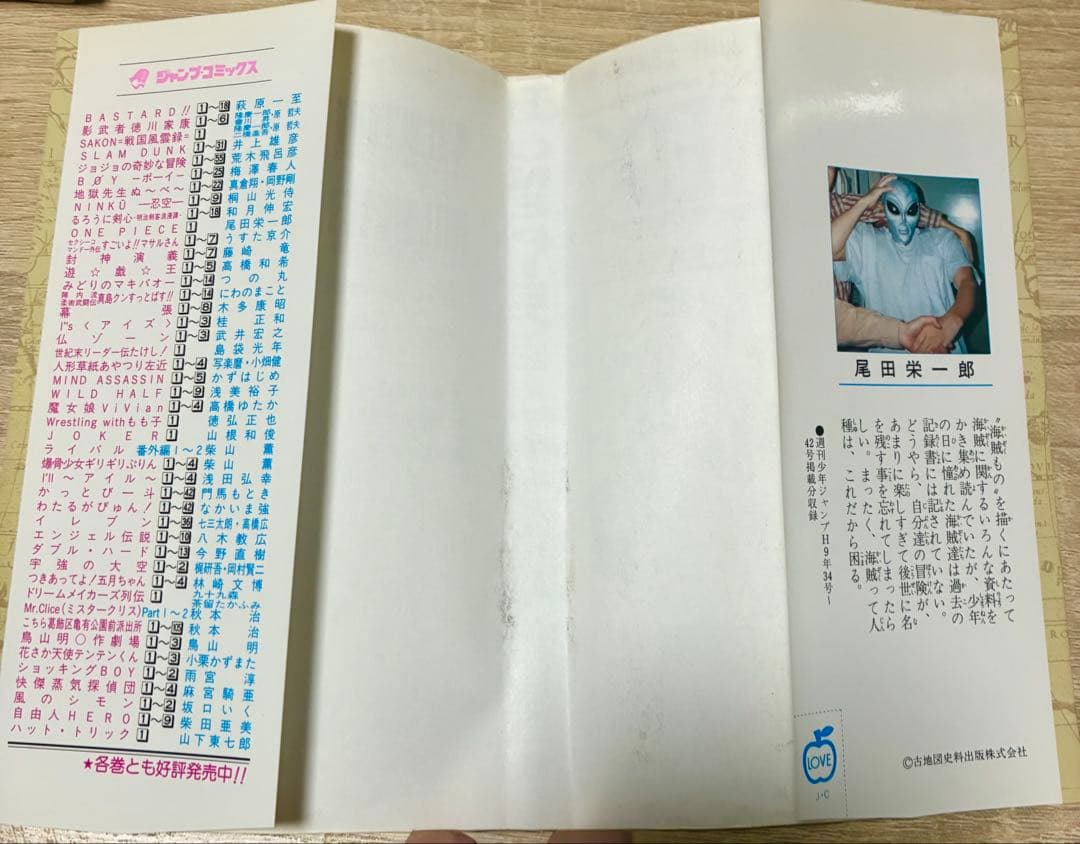 ジャンプ・コミックス
BASTARD!! 1〜18 萩原一至
影武者徳川家康 1〜6 隆慶一郎・原哲夫
SAKON=戦国風雲録= 1
SLAM DUNK 1〜31 井上雄彦
ジョジョの奇妙な冒険 1〜55 荒木飛呂彦
BØY ―ボーイ― 1〜25 梅澤春人
地獄先生ぬ〜べ〜 1〜22 真倉翔・岡野剛
NINKŪ ―忍空― 1〜9 桐山光侍
るろうに剣心・明治剣客浪漫譚・ 1〜18 和月伸宏
ONE PIECE 1 尾田栄一郎
セクシーコマンドー外伝 すごいよ!!マサルさん 1〜7 うすた京介
封神演義 1〜7 藤崎竜
遊☆戯☆王 1〜5 高橋和希
みどりのマキバオー 1〜14 つの丸
陣内流柔術武闘伝 真島クンすっとばす!! 1〜14 にわのまこと
幕張 1〜6 木多康昭
I"s〈アイズ〉 1〜3 桂正和
仏ゾーン 1〜3 武井宏之
世紀末リーダー伝たけし! 1 島袋光年
人形草紙あやつり左近 1〜4 写楽麿・小畑健
MIND ASSASSIN 1〜5 かずはじめ
WILD HALF 1〜9 浅美裕子
魔女娘ViVian 1〜4 高橋ゆたか
Wrestling withもも子 1 徳弘正也
JOKER 1 山根和俊
ライバル 番外編1〜2 柴山薫
爆骨少女ギリギリぷりん 1〜4 柴山薫
I'll 〜アイル〜 1〜4 浅田弘幸
かっとび一斗 1〜42 門馬もとき
わたるがぴゅん! 1〜42 なかいま強
イレブン 1〜39 七三太朗・高橋広
エンジェル伝説 1〜10 八木教広
ダブル・ハード 1〜13 今野直樹
宇強の大空 1〜2 梶研吾・岡村賢二
つきあってよ!五月ちゃん 1〜4 林崎文博
ドリームメイカーズ列伝 1 九十九森 茶留たかふみ
Mr.Clice(ミスタークリス) Part1〜2 秋本治
こちら葛飾区亀有公園前派出所 秋本治
鳥山明○作劇場 1〜3 鳥山明
花さか天使テンテンくん 1〜3 小栗かずまた
ショッキングBOY 1〜2 雨宮淳
快傑蒸気探偵団 1〜4 麻宮騎亜
風のシモン 1〜2 坂口いく
自由人HERO 1〜9 柴田亜美
ハット・トリック 1 山下東七郎
★各巻とも好評発売中!!
尾田栄一郎
“海賊もの”を描くにあたって
海賊に関するいろんな資料を
かき集め読んでいたが、少年
の日に憧れた海賊達は過去の
記録書には記されていない。
どうやら、自分達の冒険が、
あまりに楽しすぎて後世に名
を残す事を忘れてしまったら
しい。まったく、海賊って人
種は、これだから困る。
●週刊少年ジャンプH9年34号〜
42号掲載分収録
LOVE
J・C
©古地図史料出版株式会社